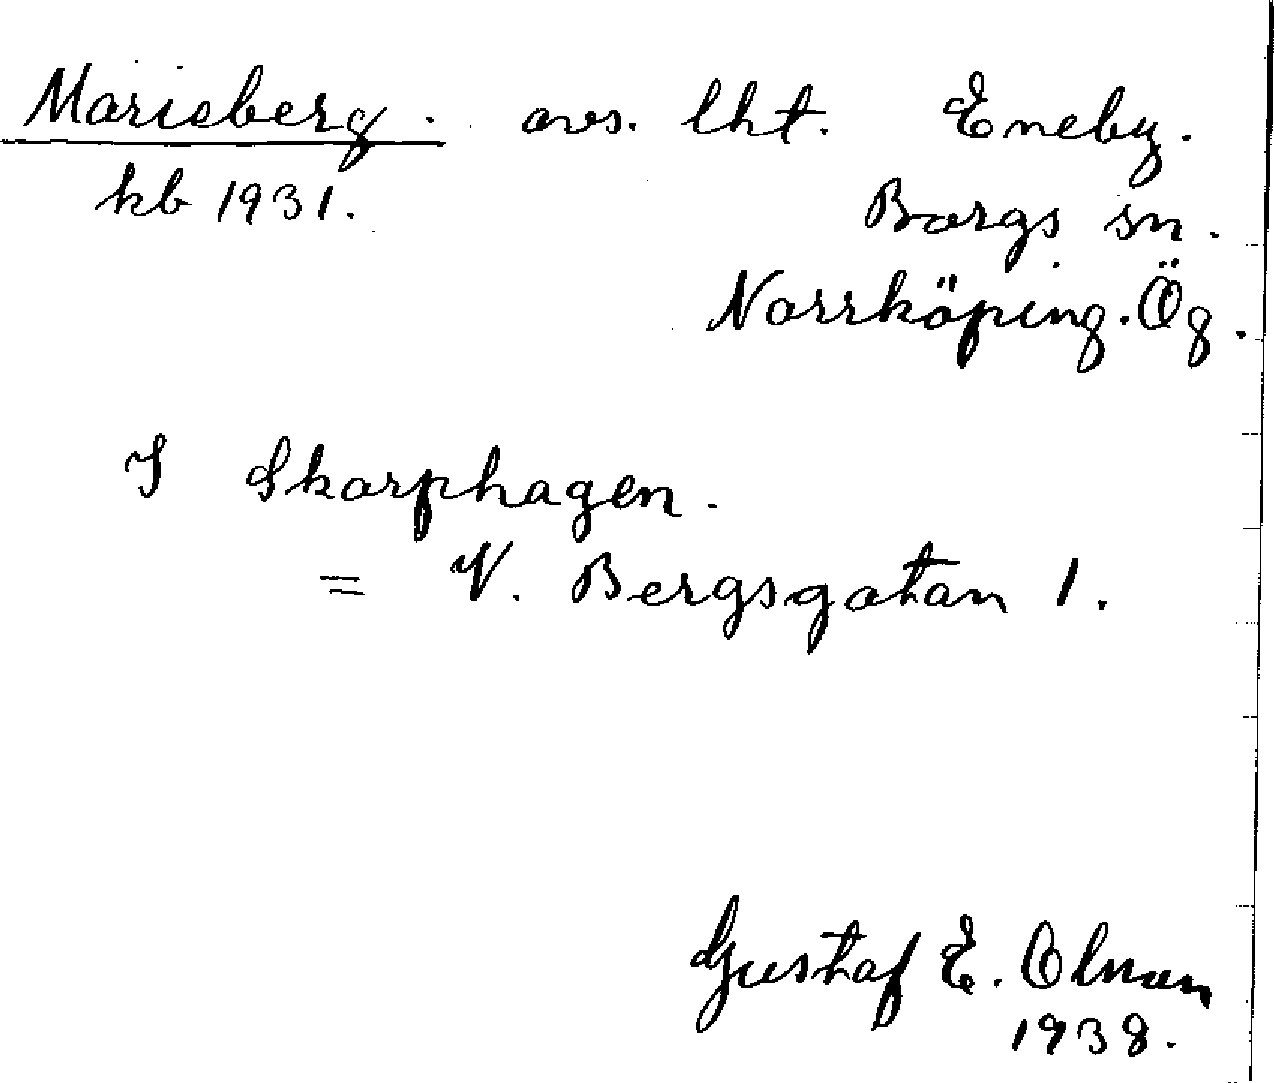 Marieberg. avs. lht. Eneby.
kb 1931. Borgs sn.
Norrköping. Ög.
I Skarphagen.
= V. Bergsgatan 1.
Gustaf E. Olman
1938.